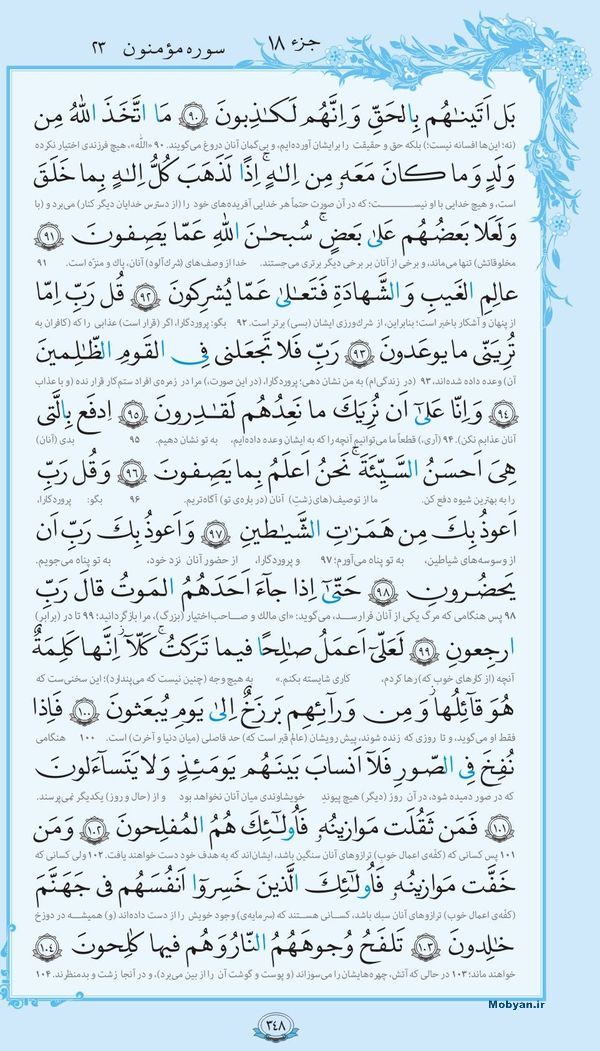 جزء ۱۸ سوره مؤمنون ۲۳
بَل أَتَينٰهُم بِالحَقِّ وَ اِنَّهُم لَكٰذِبونَ ﴿۹۰﴾ مَا اتَّخَذَ اللهُ مِن
(نه؛ این‌ها افسانه نیست؛) بلکه حق و حقیقت را برایشان آورده‌ایم، و بی‌گمان آنان دروغ می‌گویند. ۹۰ «الله»، هیچ فرزندی اختیار نکرده
وَلَدٍ وَ ما كانَ مَعَهو مِن اِلٰهٍ ۚ اِذًا لَذَهَبَ كُلُّ اِلٰهٍ بِما خَلَقَ
است، و هیچ خدایی با او نیست؛ که در آن صورت حتماً هر خدایی آفریده‌های خود را (از دسترس خدایان دیگر کنار) می‌برد و (با
وَلَعَلا بَعضُهُم عَلىٰ بَعضٍ ۚ سُبحٰنَ اللهِ عَمّا يَصِفونَ ﴿۹۱﴾
مخلوقاتش) تنها می‌ماند، و برخی از آنان بر برخی دیگر برتری می‌جستند. خدا از وصف‌های (شرک‌آلود) آنان، پاک و منزّه است. ۹۱
عالِمِ الغَيبِ وَ الشَّهادَةِ فَتَعالىٰ عَمّا يُشرِكونَ ﴿۹۲﴾ قُل رَبِّ اِمّا
از پنهان و آشکار باخبر است؛ بنابراین، از شرک‌ورزی ایشان (بسی) برتر است. ۹۲ بگو: پروردگارا، اگر (قرار است) عذابی را که (کافران به
تُرِيَنّى ما يوعَدونَ ﴿۹۳﴾ رَبِّ فَلا تَجعَلنى فِى القَومِ الظّٰلِمينَ
آن) وعده داده شده‌اند، ۹۳ (در زندگی‌ام) به من نشان دهی؛ پروردگارا، (در این صورت،) مرا در زمره‌ی افراد ستم‌کار قرار نده (و با عذاب
﴿۹۴﴾ وَ اِنّا عَلىٰ اَن نُرِيَكَ ما نَعِدُهُم لَقٰدِرونَ ﴿۹۵﴾ اِدفَع بِالَّتى
آنان عذابم نکن). ۹۴ (آری،) قطعاً ما می‌توانیم آنچه را که به ایشان وعده داده‌ایم، به تو نشان دهیم. ۹۵ بدی (آنان)
هِىَ اَحسَنُ السَّيِّئَةَ ۚ نَحنُ اَعلَمُ بِما يَصِفونَ ﴿۹۶﴾ وَ قُل رَبِّ
را به بهترین شیوه دفع کن. ما از توصیف(های زشتِ) آنان (در باره‌ی تو) آگاه‌تریم. ۹۶ بگو: پروردگارا،
اَعوذُ بِكَ مِن هَمَزٰتِ الشَّيٰطينِ ﴿۹۷﴾ وَ اَعوذُ بِكَ رَبِّ اَن
از وسوسه‌های شیاطین، به تو پناه می‌آورم؛ ۹۷ و پروردگارا، از حضور آنان نزد خود، به تو پناه می‌جویم.
يَحضُرونِ ﴿۹۸﴾ حَتّىٰ اِذا جاءَ اَحَدَهُمُ المَوتُ قالَ رَبِّ
۹۸ پس هنگامی که مرگ یکی از آنان فرارسد، می‌گوید: «ای مالک و صاحب‌اختیار (بزرگ)، مرا بازگردانید؛ ۹۹ تا در (برابر)
ارجِعونِ ﴿۹۹﴾ لَعَلّى اَعمَلُ صٰلِحًا فيما تَرَكتُ ۚ كَلّا ۚ اِنَّها كَلِمَةٌ
آنچه (از کارهای خوب که) رها کردم، کاری شایسته بکنم.» به هیچ وجه (چنین نیست که می‌پندارد)؛ این سخنی‌ست که
هُوَ قائِلُها ۖ وَ مِن وَرائِهِم بَرزَخٌ اِلىٰ يَومِ يُبعَثونَ ﴿۱۰۰﴾ فَاِذا
فقط او می‌گوید، و تا روزی که زنده شوند، پیش رویشان (عالم قبر است که) حد فاصلی (میان دنیا و آخرت) است. ۱۰۰ هنگامی
نُفِخَ فِى الصّورِ فَلا اَنسابَ بَينَهُم يَومَئِذٍ وَ لا يَتَساءَلونَ
که در صور دمیده شود، در آن روز (دیگر) هیچ پیوند خویشاوندی میان آنان نخواهد بود و از (حال و روز) یکدیگر نمی‌پرسند.
﴿۱۰۱﴾ فَمَن ثَقُلَت مَوازينُهو فَاُولٰئِكَ هُمُ المُفلِحونَ ﴿۱۰۲﴾ وَ مَن
۱۰۱ پس کسانی که (کفّه‌ی اعمال خوب) ترازوهای آنان سنگین باشد، ایشان‌اند که به هدف خود دست خواهند یافت. ۱۰۲ ولی کسانی که
خَفَّت مَوازينُهو فَاُولٰئِكَ الَّذينَ خَسِروا اَنفُسَهُم فى جَهَنَّمَ
(کفّه‌ی اعمال خوب) ترازوهای آنان سبک باشد، کسانی هستند که سرمایه‌ی) وجود خویش را از دست داده‌اند (و) همیشه در دوزخ
خٰلِدونَ ﴿۱۰۳﴾ تَلفَحُ وُجوهَهُمُ النّارُ وَ هُم فيها كٰلِحونَ ﴿۱۰۴﴾
خواهند ماند؛ ۱۰۳ در حالی که آتش، چهره‌هایشان را می‌سوزاند (و پوست و گوشت آن را از بین می‌برد)، و در آنجا زشت و بدمنظرند. ۱۰۴
Mobyan.ir
۳۴۸